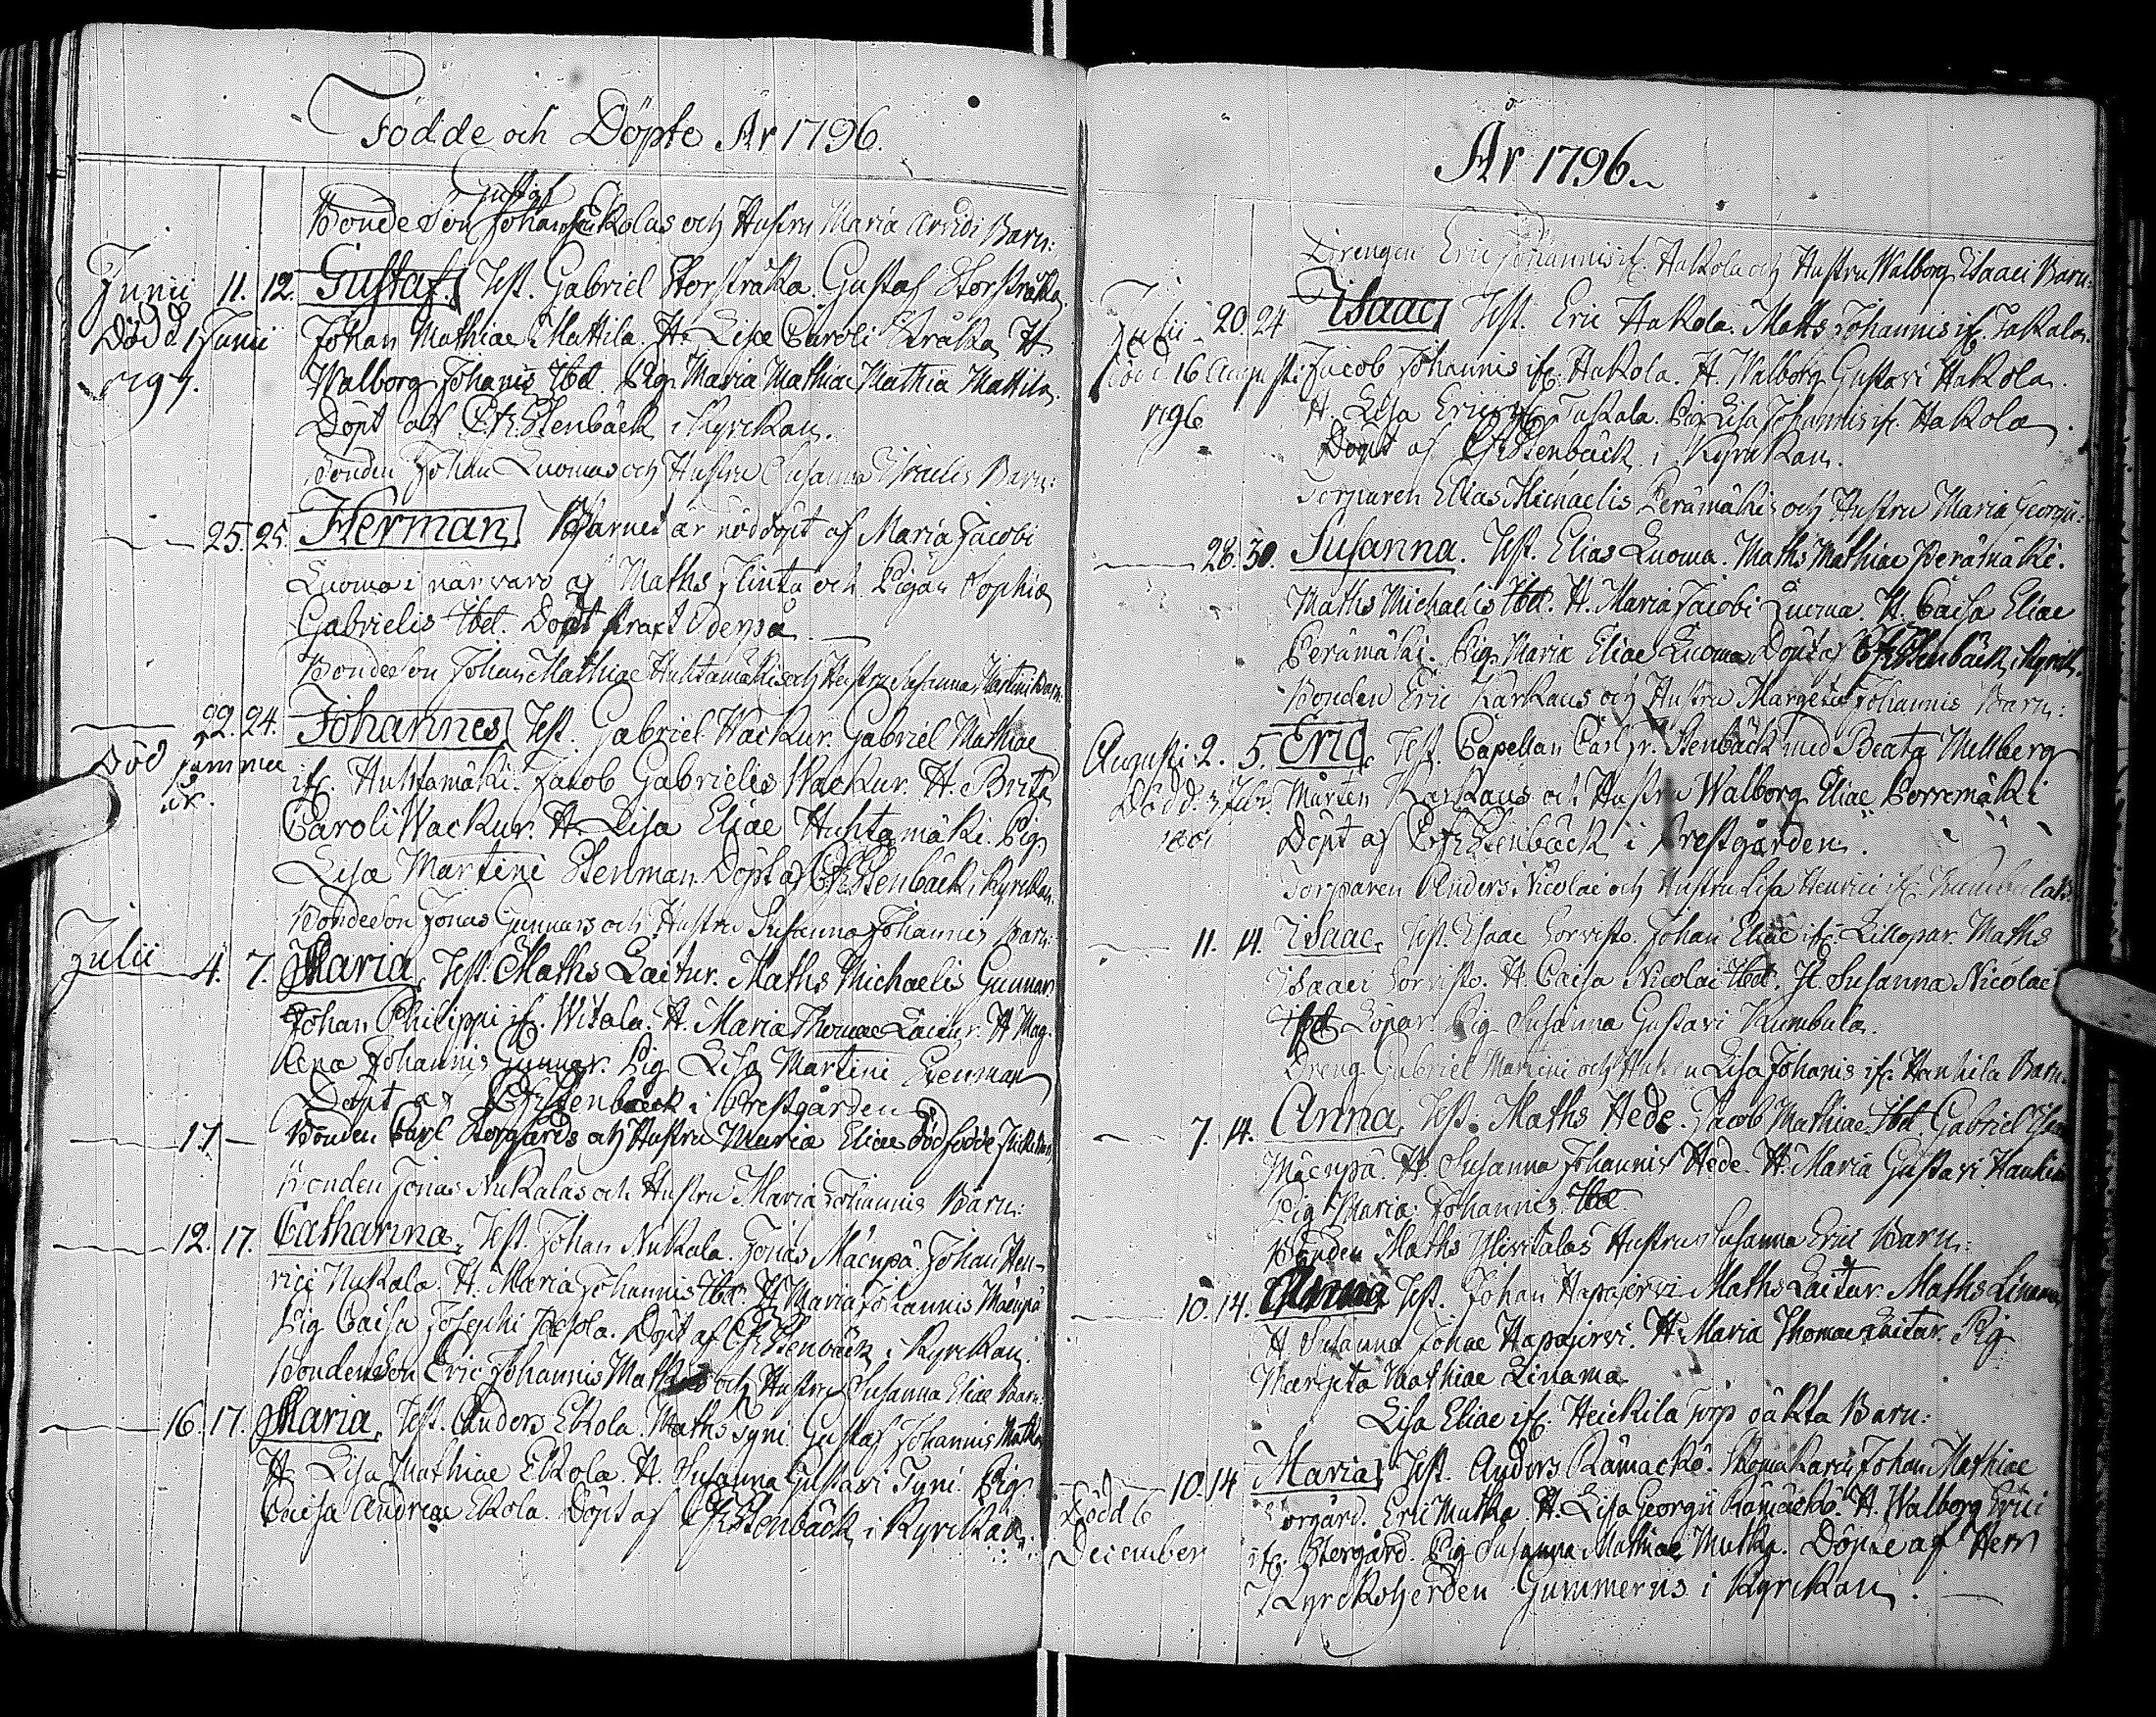 Födde och Döpte År 1796.
Gustaf
Bonde Son Johan Kolas och Hustru Maria Arvidi Barn:
Junii 11. 12. Gustaf. Test. Gabriel Storstråka. Gustaf Storstråka
Död d 1 Junii Johan Mathiae Mattila. H. Lisa Caroli Stråka, H.
1797. Walborg Johanis Ibd. Pig. Maria Mathiae Mathiae Mattila.
Döpt af CFrStenbäck i Kyrckan.
Bonden Johan Luomas och Hustru Susanna Barn:
25. 25. Herman, Barnet är nöddöpt af Maria Jacobi
Luoma i närvaro af Maths Flinta och Pigan Sophia
Gabrielis Ibd. Döpt straxt derpå
Bonde Son Johan Mathiae Huhtamäkis och Hustru Susanna Martini Barn.
22. 24. Johannes, Test. Gabriel Wackur. Gabriel Mathiae
Död samma år. ifr. Huhtamäki. Jacob Gabrielis Wackur. H. Brita
Caroli Wackur. H. Lisa Eliae Huhtamäki. Pig.
Lisa Martini Stenman. Döpt af CFrStenbäck i Kyrckan.
Bonde Son Jonas Gunnars och Hustru Susanna Johannis Barn:
Julii 4. 7. Maria, Test. Maths Laitur. Maths Michaelis Gunnar.
Johan Philippi if. Witala. H. Maria Thomae Laitur. H. Mag-
lena Johannis Gunnar. Pig. Lisa Martini Stenman
Döpt af CFrStenbäck i Prestgården
11. — Bonden Carl Storgårds och Hustru Maria Eliae dödfödde
Bonden Jonas Nukalas och Hustru Maria Johannis Barn:
12. 17. Catharina, Test. Johan Nukala. Jonas Mäenpä. Johan Hen-
rici Nukala. H. Maria Johannis Ibd. H. Maria Johannis Mäenpä
Pig. Caisa Josephi. Döpt af CFrStenbäck i Kyrckan.
Bonde Son Eric Johannis och Hustru Susanna Eliae Barn:
16. 17. Maria, Test. Anders Ekola. Maths Tyni. Gustaf Johannis
H. Lisa Mathiae Ekola. H. Susanna Gustavi Tyni. Pig.
Caisa Andreae Ekola. Döpt af CFrStenbäck i Kyrckan.
År 1796.
Drengen Eric Johannis if. Hakola och Hustru Walborg Isaaci Barn:
Julii 20. 24 Isaac, Test. Eric Hakola. Matts Johannis if.
död 16 Augusti Jacob Johannis if. Hakola. H. Walborg Gustavi Hakola.
1796 H. Lisa Erici. Pig. Lisa Johannis if. Hakola.
Döpt af CFrStenbäck i Kyrckan.
Torparen Elias Michaelis Perämäkis och Hustru Maria Georgii:
28. 30. Susanna. Test. Elias Luoma. Maths Mathiae Perämäki.
Maths Michaelis Ibd. H. Maria Jacobi Luoma. H. Caisa Eliae
Perämäki. Pig. Maria Eliae Luoma Döpt af CFrStenbäck i Kyrck.
Bonden Eric Karkaus och Hustru Margeta Johannis Barn:
Augusti 2. 5. Eric, Test. Capellan Carl Fr. Stenbäck med Beata Mellberg
Död d. 3 Febr. Mårten Karkaus och Hustru Walborg Eliae Porremäki
1801 Döpt af CFrStenbäck i Prestgården.
Torparen Anders Nicolai och Hustru Lisa Henrici if. Kumbula B.
11. 14. Isaac, Test. Isaac Sorvisto. Johan Eliae if. Lillopar. Maths
Isaaci Sorvisto. H. Caisa Nicolai Ibd. H. Susanna Nicolai
Pig Susanna Gustavi Kumbula.
Dreng Gabriel Martini och Hustru Lisa Johanis if. Hanhila Barn.
7. 14. Anna, Test. Maths Hede. Jacob Mathiae Ibd. Gabriel
Mäenpä. H. Susanna Johannis Hede. H. Maria Gustavi
Pig Maria Johannis Ibd.
Bonden Maths Ylivitalas Hustru Susanna Erici Barn:
10. 14. Anna, Test. Johan Hapajervi. Maths Laitur. Maths Linama
H. Susanna Johae Hapajervi. H. Maria Thomae Laitur. Pig.
Margeta Mathiae Linama
Lisa Eliae if. Heickila Torp oäkta Barn:
10. 14 Maria, Test. Anders Rämackö. Johan Mathiae
Död d 6 Eric Mutka. H. Lisa Georgii Rämackö. H. Walborg Erici
December if. Stergård. Pig. Susanna Mathiae Mutka. Döpte af Herr
Kyrckoherden Gummerus i Kyrckan.